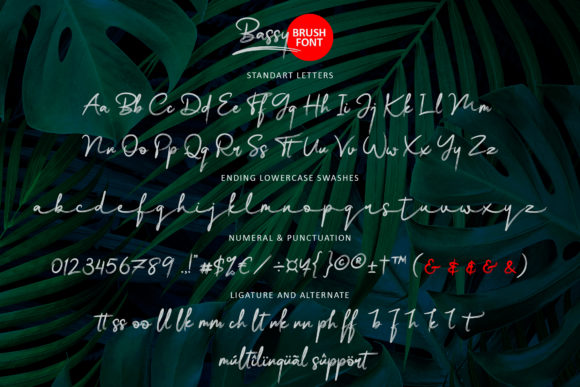 Bassy BRUSH FONT
STANDART LETTERS
Aa Bb Cc Dd Ee Ff Gg Hh Ii Jj Kk Ll Mm
Nn Oo Pp Qq Rr Ss Tt Uu Vv Ww Xx Yy Zz
ENDING LOWERCASE SWASHES
a b c d e f g h i j k l m n o p q r s t u v w x y z
NUMERAL & PUNCTUATION
0123456789 .,!"#$%€/÷¤¥{}©®±†™(& & & & &)
LIGATURE AND ALTERNATE
tt ss oo ll lk mm ch lt nk nn ph ff b f h k l t
múltîlïngüãl sûppört